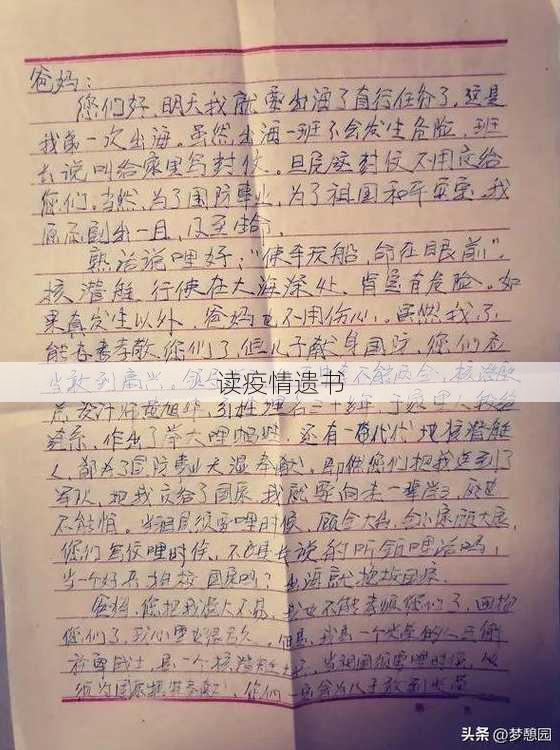 爸妈：
您们好，明天我就要出海了直行任务了，这是
我第一次出海。虽然出海一班不会发生危险，班
长说叫给家里写封信。但是家封信不用交给
您们，当然，为了国防事业，为了祖国和平安宁，我
愿付出一且，及至生命。
熟话说哩好："使车玩船，命在眼前"。
核潜艇，行使在大海深处，肯定有危险。如
果真发生以外，爸妈也不用伤心。虽然我不
能在着孝敬您们了，但儿子献身国防，您们应
当敢到高兴。
读疫情遗书
总设计师黄旭华，隐姓埋名三十多年，
还有一代代核潜艇
人都为了国防事业 奉献。即然您们把我送到了
军队，把我交给了国家，我就要向老一辈学习，
不能悄。当祖国须要哩时候，顾全大局，舍小家顾大家，
您们写信哩时候，不都是长说的听领哩话吗，
当一个好兵 报校国家吗？出海就抱校国家。
爸妈，您把我养大不易，我也不能孝敬您们了，回抱
您们了，我心里也很 但是，我是一个光荣的人民
海军战士，是一个核潜艇 ，当祖国须要哩时候，
须为国家 奉献，您们一定会为儿子敢到
头条 @梦憩园